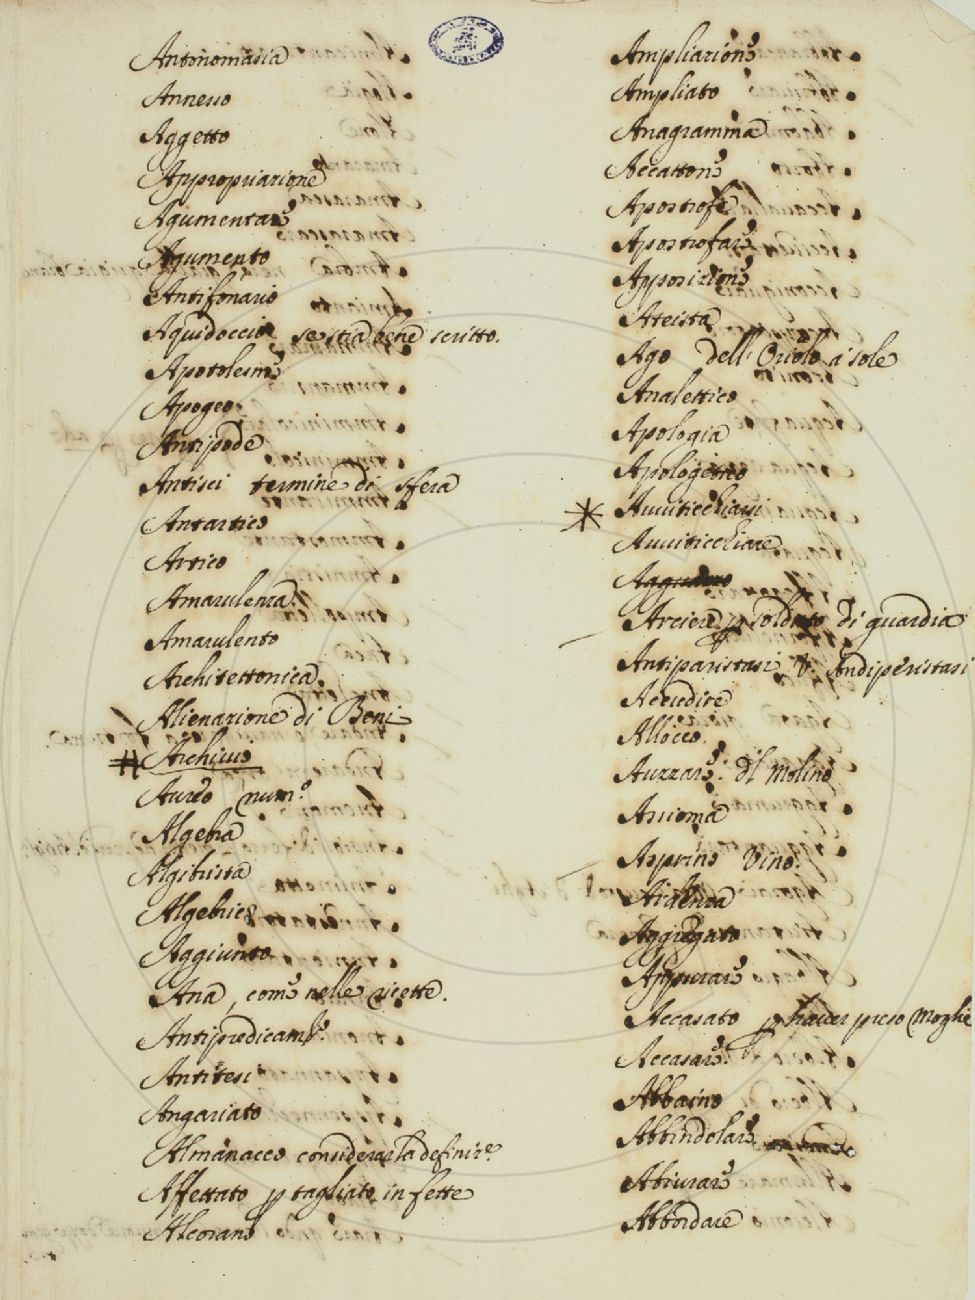 Antonomasia
Annesso
Aggetto
Appropriazione
Agumentare
Agumento
Antifonario
Aquidoccio se stia bene scritto.
Apotelesme
Apogeo
Antipode
Antisci termine di sfera
Antartico
Artico
Amarulenza
Amarulento
Architettonica
Alienazione di Beni
# Archivio
Aureo num.º
Algebra
Algibrista
Algebrico
Aggiunto
Ana, come nelle ricette.
Antipredicam.
Antitesi
Angariato
Almanacco considerar la definiz.e
Affettato p tagliato in fette
Alcorano
Ampliazione
Ampliato
Anagramma
Accattone
Apostrofe
Apostrofare
Apposizione
Ateista
Ago dell'Oriolo a sole
Analettico
Apologia
Apologetico
* Avviticchiarsi
Avviticchiare
Arciere p soldato di guardia
Antiparistasi V. Andiperistasi
Accudire
Allocco.
Auzzare: dl Molino
Assioma
Asprino Vino.
Aidenza
Aggregato
Appurare
Accasato p haver preso Moglie
Accasare.
Abbaino
Abbindolare
Abiurare
Abbordare